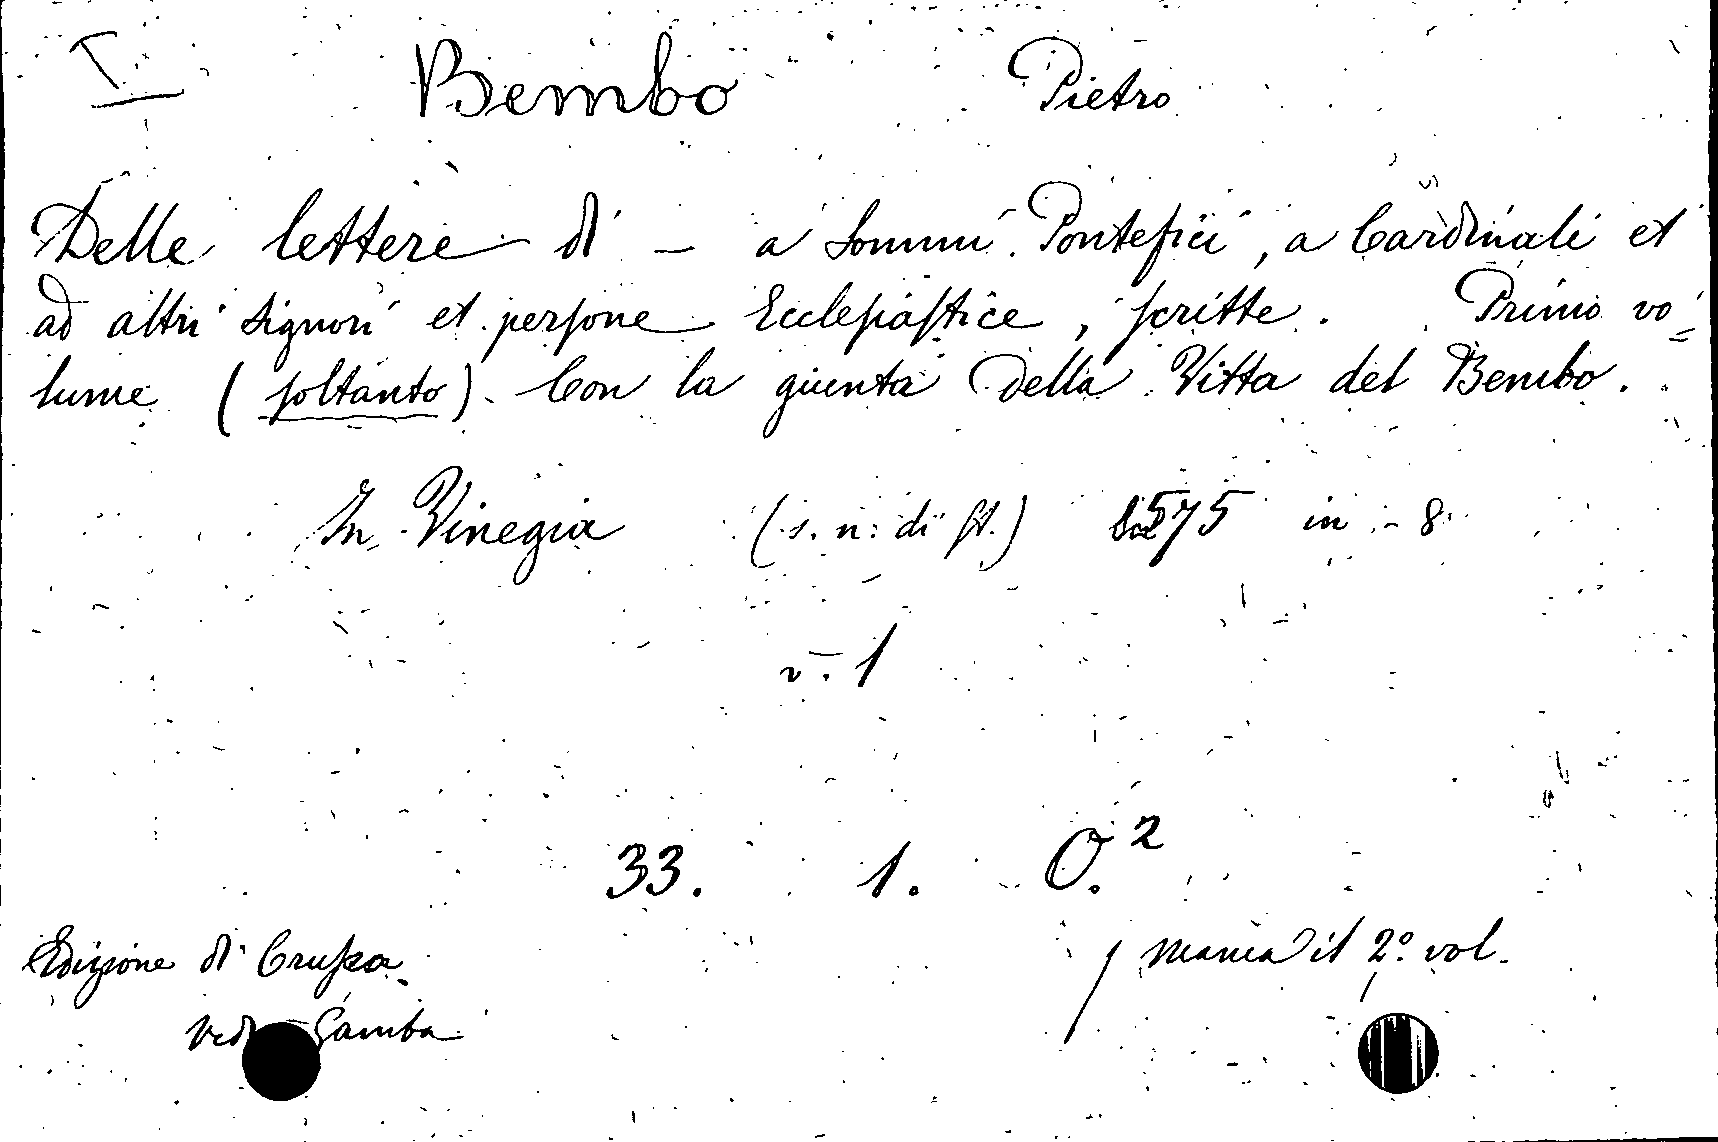 I Bembo Pietro
Delle lettere di – a Sommi Pontefici, a Cardinali et
ad altri Signori et persone Ecclesiastice, scritte. Primo vo=
lume (soltanto). Con la giunta della Vitta del Bembo.
In Vinegia (s. n. di st.) 1575 in - 8
v. 1
33. 1. O.²
Edizione di Crusca / manca il 2º vol.
Gamba